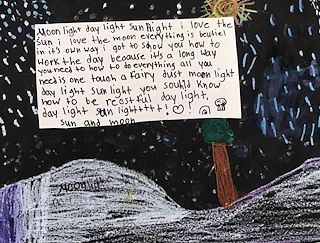 Moon light day light sun hight i love the
sun i love the moon everything is beutiel
in it's own way i got to show you how to
work the day because it's a long way
you need to hav to do everything all you
need is one touch a fairy dust moon light
day light sun light you sould know
how to be restful day light,
day light sun lighttttt!
sun and moon
moonlight